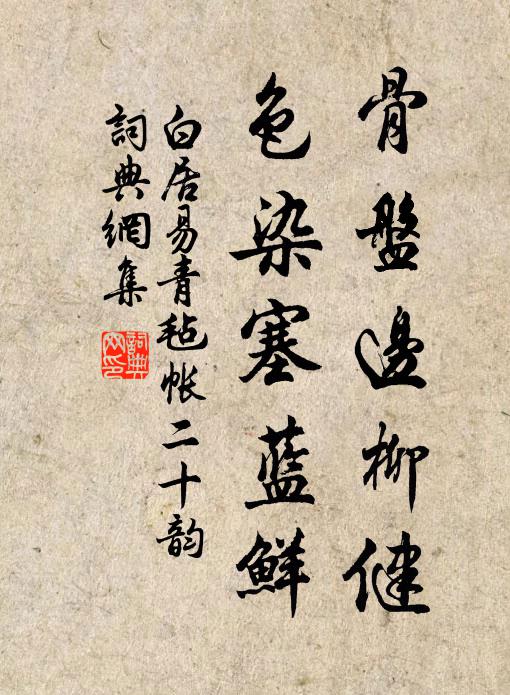 骨盤邊柳健
色染塞藍鮮
白居易青毡帳二十韵
詞典網集
詞典網印